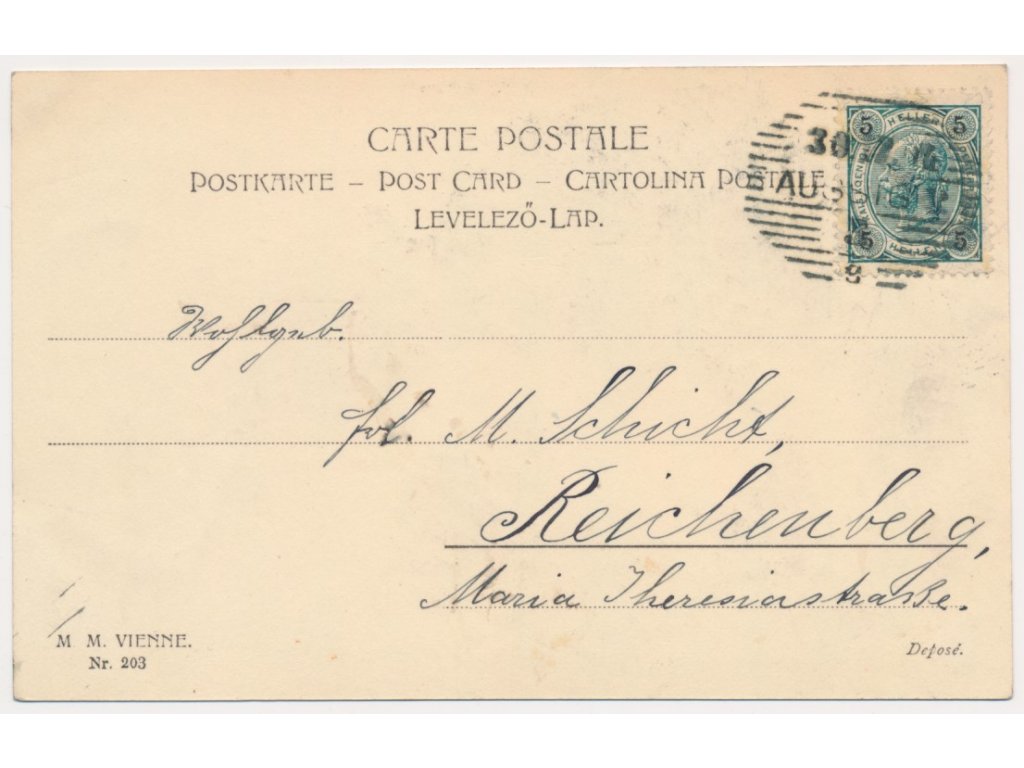 CARTE POSTALE
POSTKARTE – POST CARD – CARTOLINA POSTALE
LEVELEZŐ-LAP.
30
AUG
5 HELLER 5
5 HELLER 5
Wohlgeb.
Frl. M. Schicht,
Reichenberg,
Maria Theresiastraße.
M. M. VIENNE.
Nr. 203
Deposé.